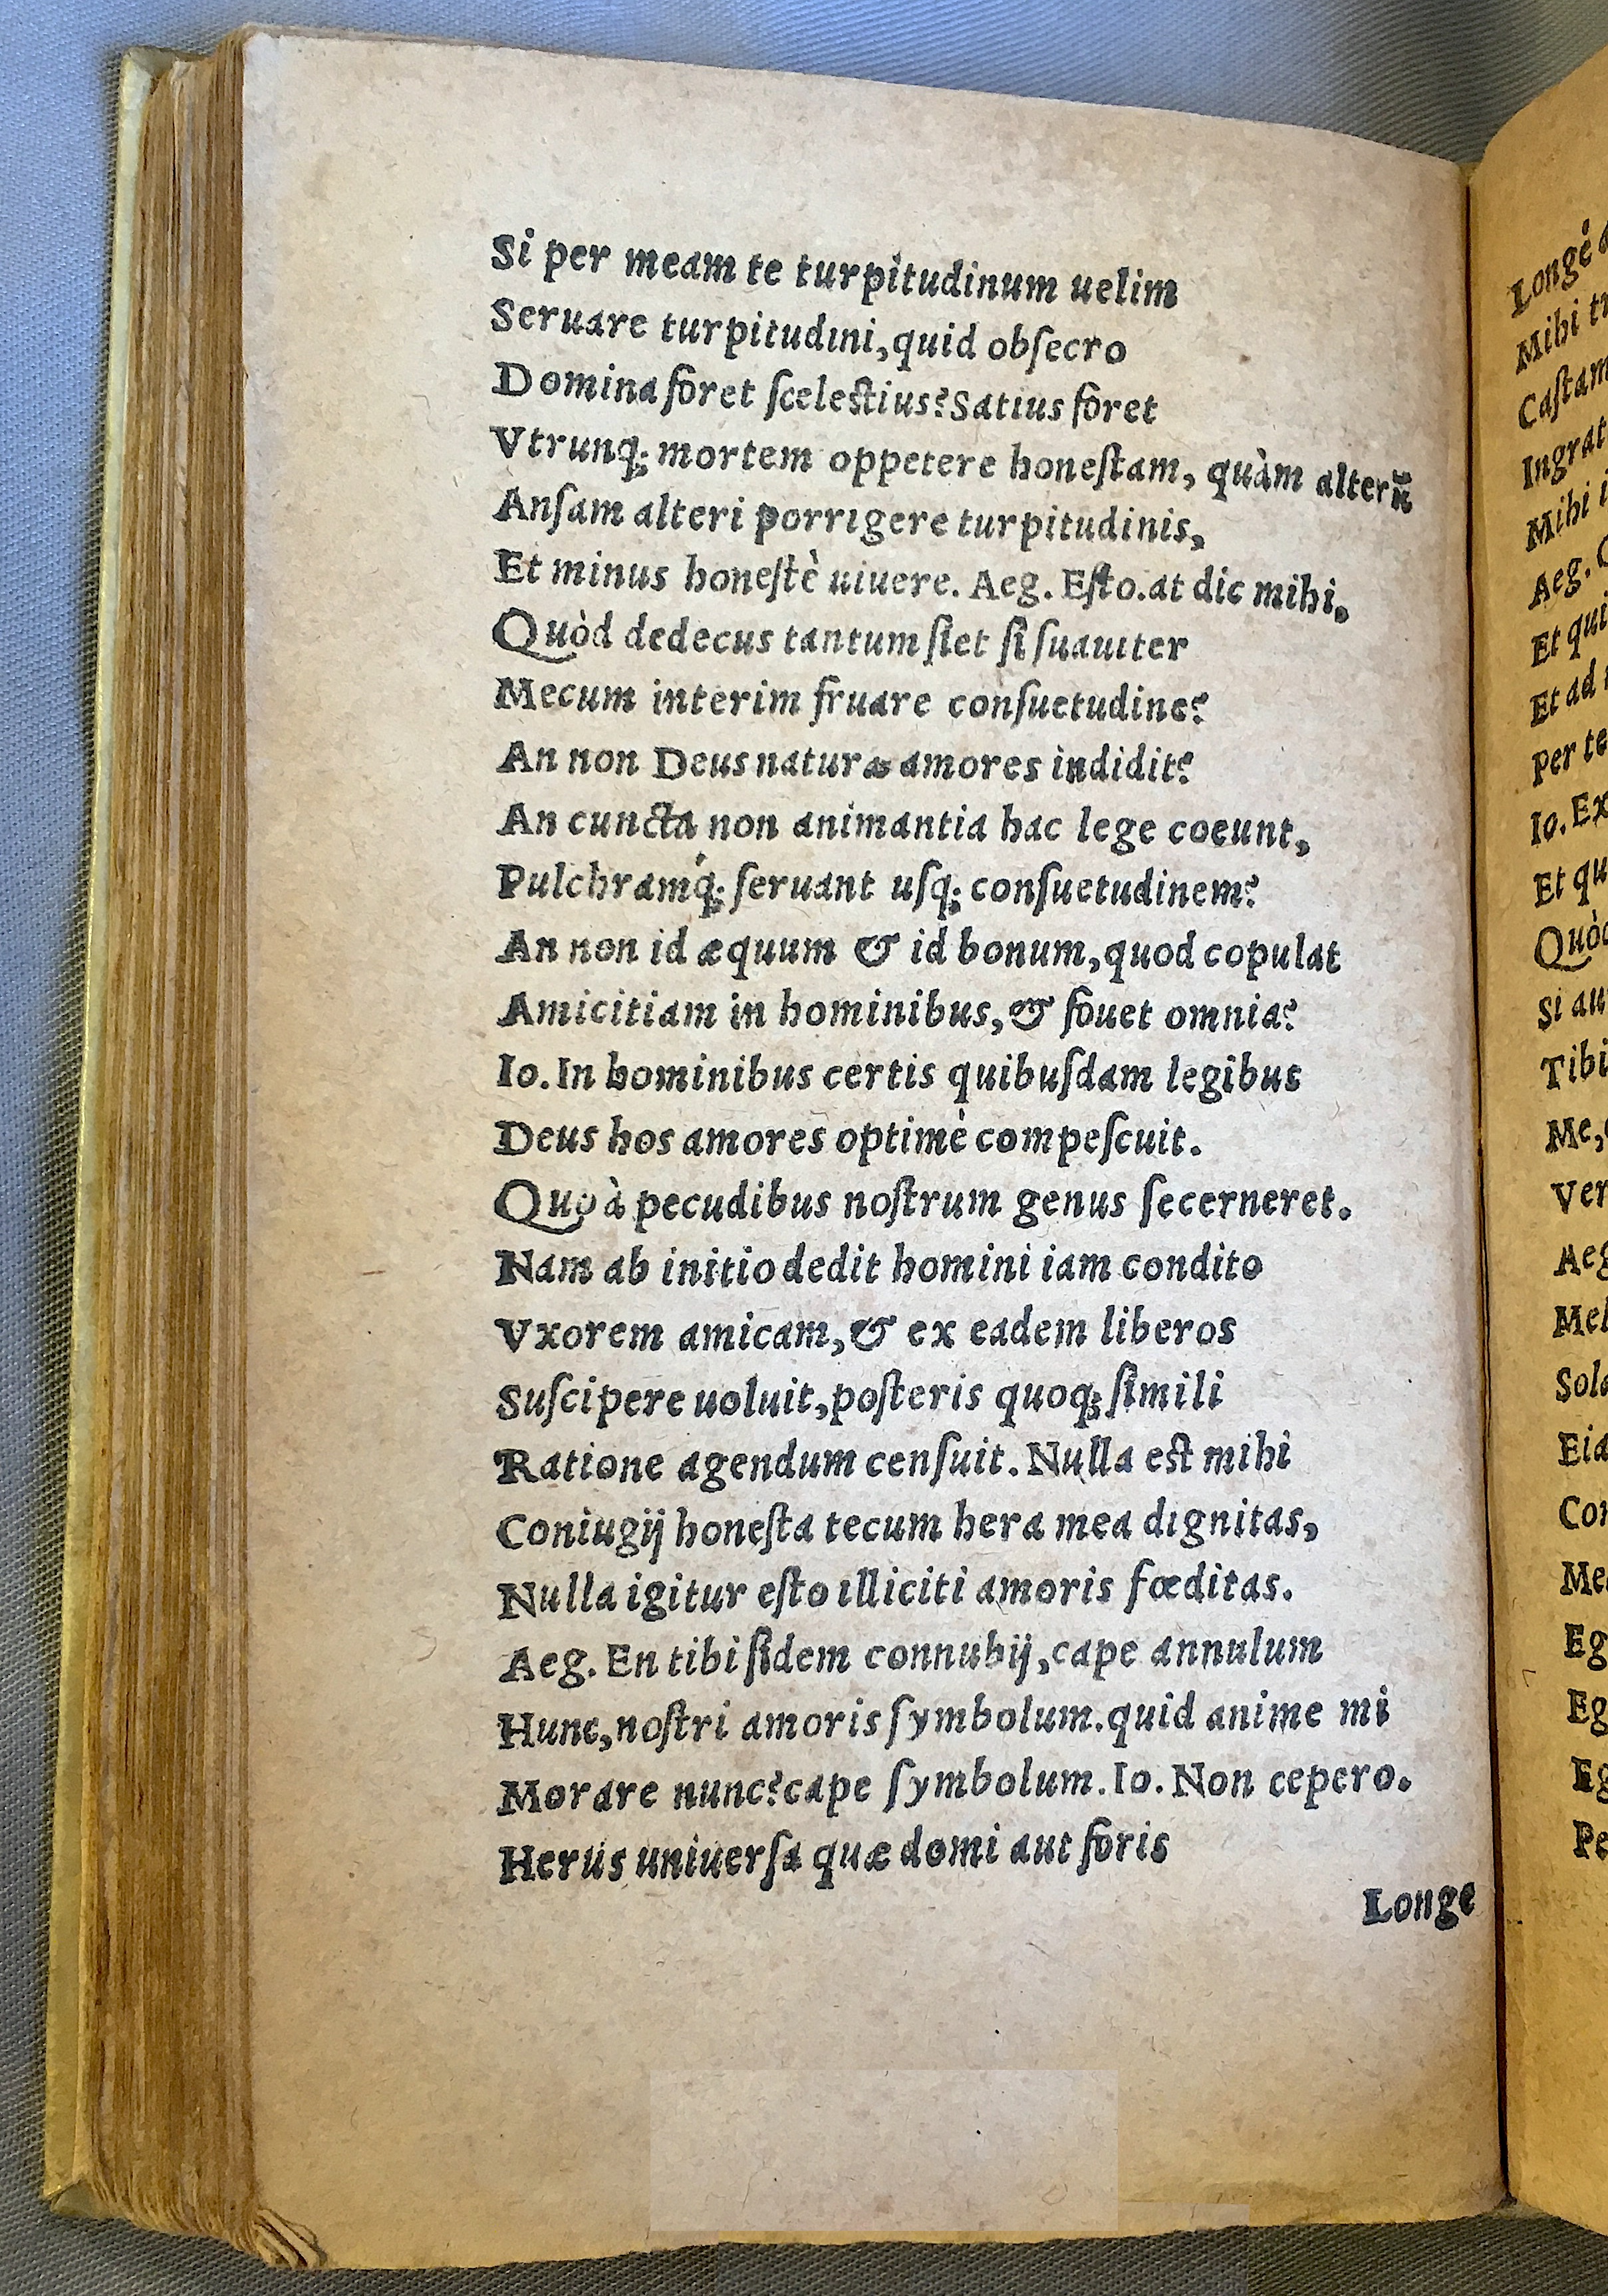 Si per meam te turpitudinum uelim
Seruare turpitudini,quid obſecro
Domina foret ſceleſtius?Satius foret
Vtrunq; mortem oppetere honeſtam, quàm alterū
Anſam alteri porrigere turpitudinis,
Et minus honeſtè uiuere. Aeg. Eſto.at dic mihi,
Quòd dedecus tantum ſiet ſi ſuauiter
Mecum interim fruare conſuetudine?
An non Deus naturæ amores indidit?
An cuncta non animantia hac lege coeunt,
Pulchramq́; ſeruant uſq; conſuetudinem?
An non id æquum & id bonum,quod copulat
Amicitiam in hominibus,& fouet omnia?
Io.In hominibus certis quibuſdam legibus
Deus hos amores optimè compeſcuit.
Quo à pecudibus noſtrum genus ſecerneret.
Nam ab initio dedit homini iam condito
Vxorem amicam,& ex eadem liberos
Suſcipere uoluit,poſteris quoq; ſimili
Ratione agendum cenſuit. Nulla eſt mihi
Coniugij honeſta tecum hera mea dignitas,
Nulla igitur eſto illiciti amoris fœditas.
Aeg. En tibi fidem connubij,cape annulum
Hunc,noſtri amoris ſymbolum.quid anime mi
Morare nunc?cape ſymbolum. Io. Non cepero.
Herus uniuerſa quæ domi aut foris
Longe
Longè
Mihi
Caſtam
Ingrat
Mihi
Aeg.
Et qui
Et ad
Per te
Io. Ex
Et qu
Quòd
Si au
Tibi
Me,
Ver
Aeg
Mel
Sola
Eia
Con
Me
Eg
Eg
Eg
Pe